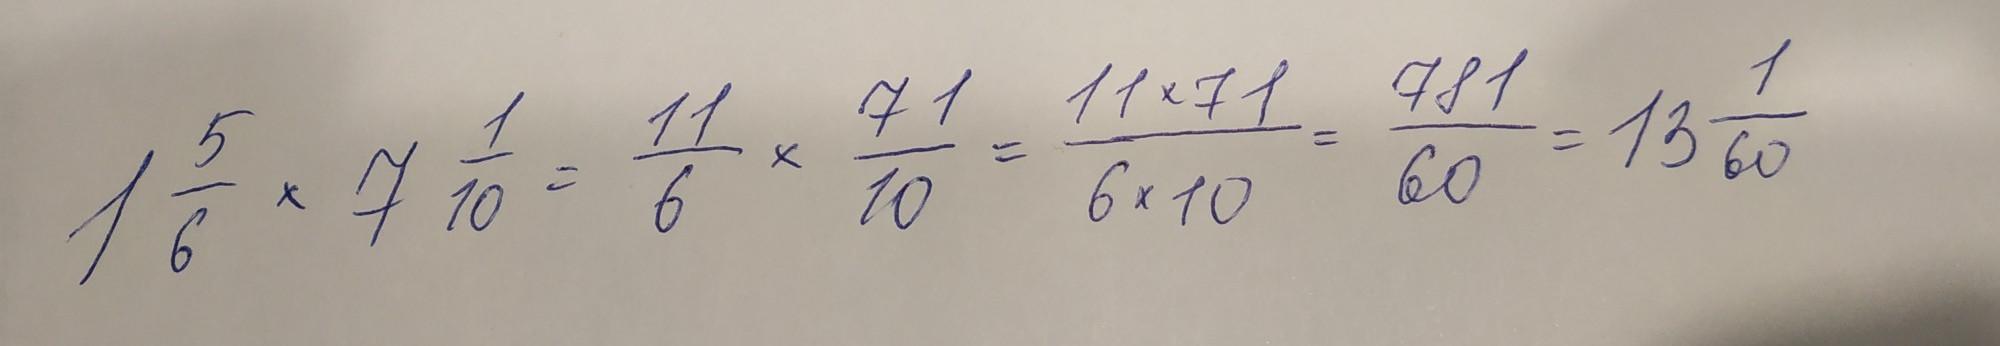 1 5/6 × 7 1/10 = 11/6 × 71/10 = 11×71/6×10 = 781/60 = 13 1/60